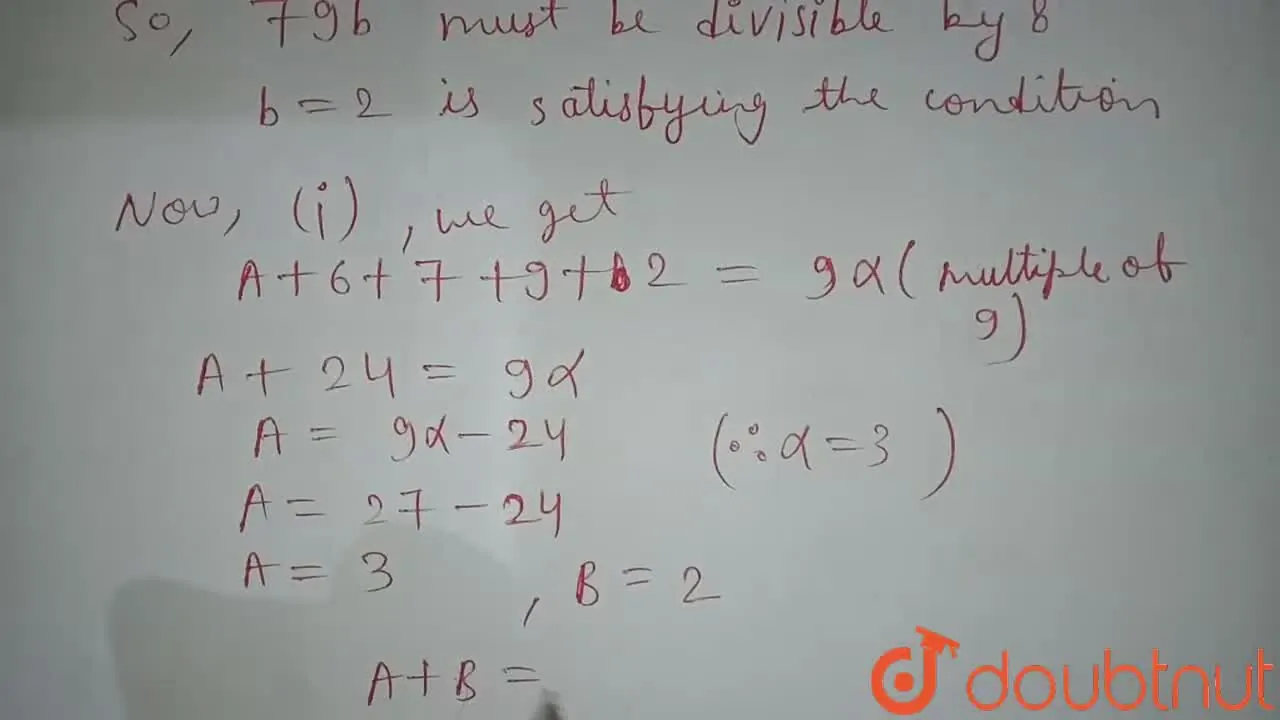 So, 79b must be divisible by 8
b = 2 is satisfying the condition
Now, (i), we get
A + 6 + 7 + 9 + 2 = 9α (multiple of
9)
A + 24 = 9α
A = 9α - 24 (∵ α = 3)
A = 27 - 24
A = 3 , B = 2
A + B =
doubtnut